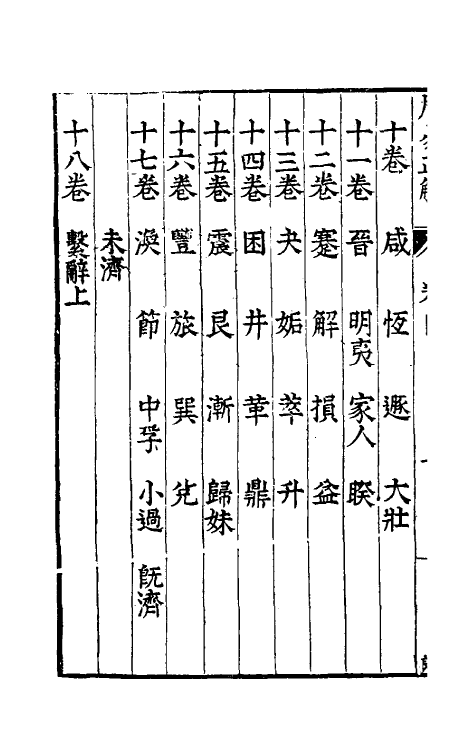 十卷 咸 恆 遯 大壯
十一卷 晉 明夷 家人 睽
十二卷 蹇 解 損 益
十三卷 夬 姤 萃 升
十四卷 困 井 革 鼎
十五卷 震 艮 漸 歸妹
十六卷 豐 旅 巽 兌
十七卷 渙 節 中孚 小過 旣濟
未濟
十八卷 繫辭上